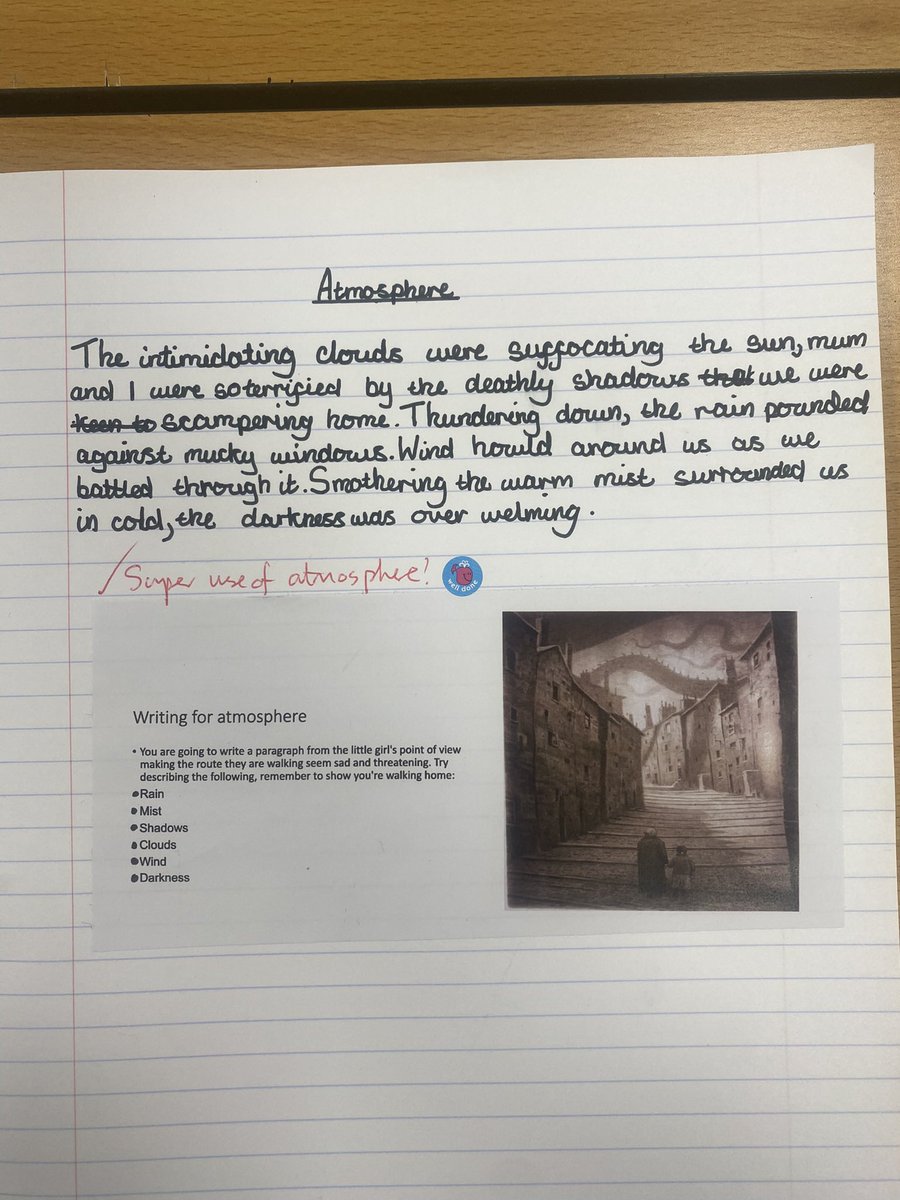 Atmosphere
The intimidating clouds were suffocating the sun, mum
and I were so terrified by the deathly shadows that we were
keen to scampering home. Thundering down, the rain pounded
against mucky windows. Wind howld around us as we
battled through it. Smothering the warm mist surrounded us
in cold, the darkness was over welming.
/Super use of atmosphere!
well done
Writing for atmosphere
• You are going to write a paragraph from the little girl's point of view
making the route they are walking seem sad and threatening. Try
describing the following, remember to show you're walking home:
•Rain
•Mist
•Shadows
•Clouds
•Wind
•Darkness